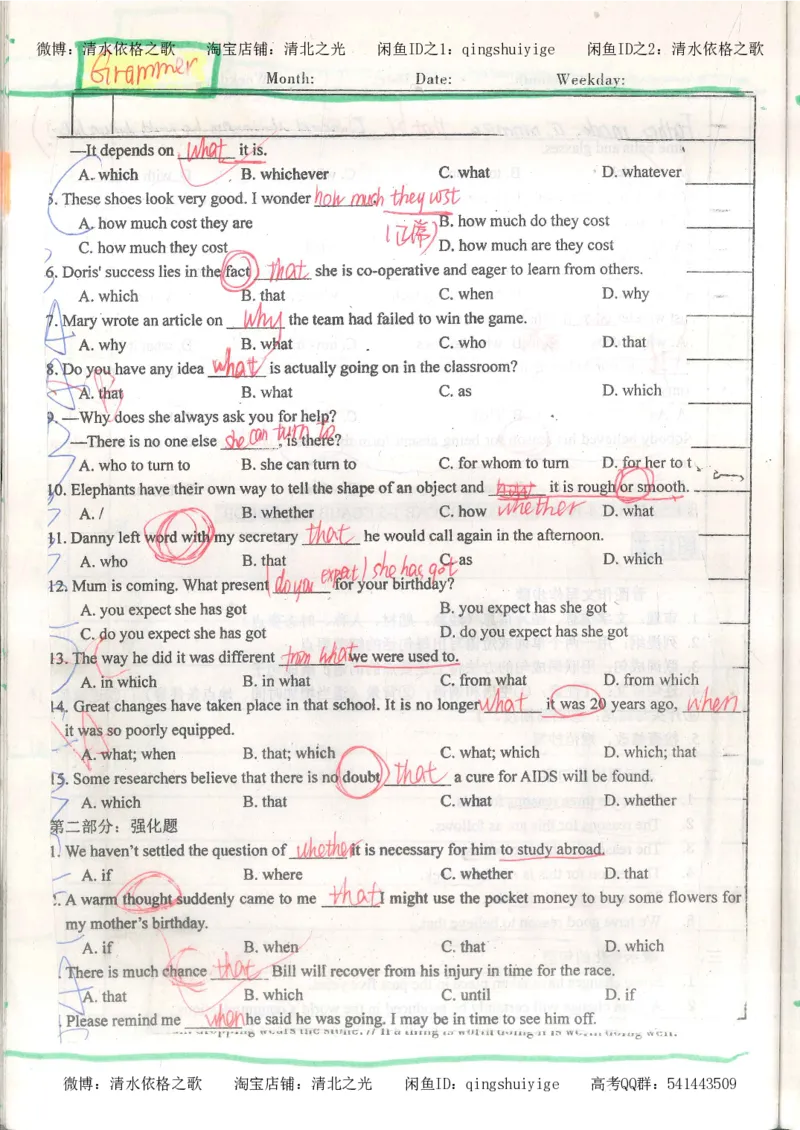 微博：清水依格之歌 淘宝店铺：清北之光 闲鱼ID之1：qingshuiyige 闲鱼ID之2：清水依格之歌
Grammer
Month: Date: Weekday:
—It depends on what it is.
A. which B. whichever C. what D. whatever
5. These shoes look very good. I wonder how much they cost
A. how much cost they are B. how much do they cost
(正常)
C. how much they cost D. how much are they cost
6. Doris' success lies in the fact that she is co-operative and eager to learn from others.
A. which B. that C. when D. why
7. Mary wrote an article on why the team had failed to win the game.
A. why B. what C. who D. that
8. Do you have any idea what is actually going on in the classroom?
A. that B. what C. as D. which
9. —Why does she always ask you for help?
—There is no one else she can turn to, is there?
A. who to turn to B. she can turn to C. for whom to turn D. for her to t
10. Elephants have their own way to tell the shape of an object and whether it is rough or smooth.
A. / B. whether C. how D. what
11. Danny left word with my secretary that he would call again in the afternoon.
A. who B. that C. as D. which
12. Mum is coming. What present do you expect she has got for your birthday?
A. you expect she has got B. you expect has she got
C. do you expect she has got D. do you expect has she got
13. The way he did it was different from what we were used to.
A. in which B. in what C. from what D. from which
14. Great changes have taken place in that school. It is no longer what it was 20 years ago, when
it was so poorly equipped.
A. what; when B. that; which C. what; which D. which; that
15. Some researchers believe that there is no doubt that a cure for AIDS will be found.
A. which B. that C. what D. whether
第二部分：强化题
1. We haven't settled the question of whether it is necessary for him to study abroad.
A. if B. where C. whether D. that
. A warm thought suddenly came to me that I might use the pocket money to buy some flowers for
my mother's birthday.
A. if B. when C. that D. which
. There is much chance that Bill will recover from his injury in time for the race.
A. that B. which C. until D. if
. Please remind me when he said he was going. I may be in time to see him off.
dropping wears the stone. // If a thing is worth doing it is worth doing well.
微博：清水依格之歌 淘宝店铺：清北之光 闲鱼ID：qingshuiyige 高考QQ群：541443509